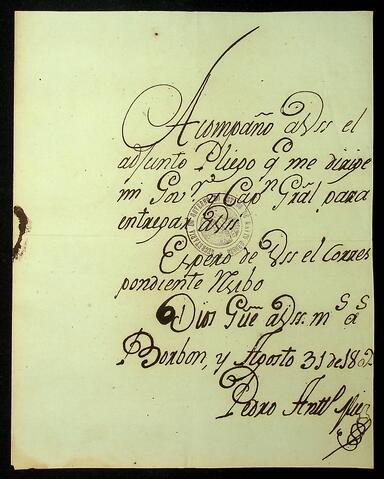 Acompaño a Vss el
adjunto Pliego q̃ me dirige
mi Gov.r y Cap.n Grãl para
entregar a Vss.
Espero de Vss el corres
pondiente Rvibo
Dios Gũe a Vss. m.s a.s
Borbon, y Agosto 31 de 18
Pedro Ant.